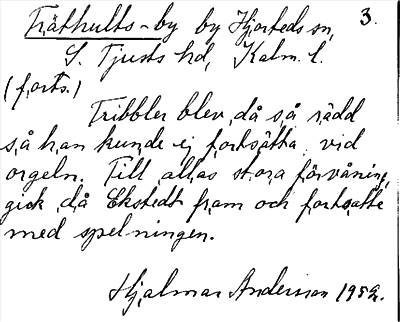 Träthults-by by Hjorteds sn, 3.
S. Tjusts hd, Kalm. l.
(forts.)
Tribbler blev då så rädd
så han kunde ej fortsätta vid
orgeln. Till allas stora förvåning,
gick då Ekstedt fram och fortsatte
med spelningen.
Hjalmar Andersson 1952.